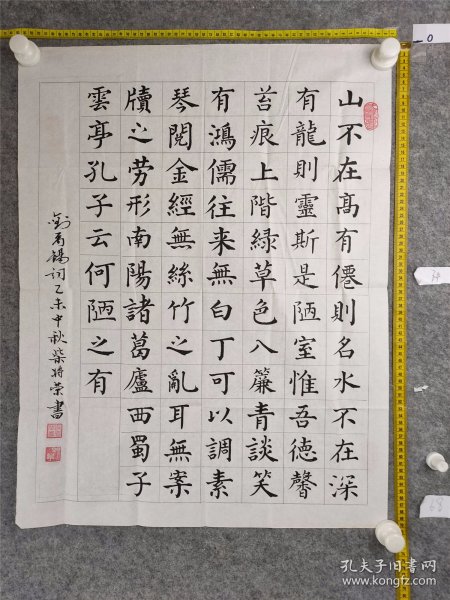 山不在髙有僊則名水不在深
有龍則靈斯是陋室惟吾德馨
苔痕上階緑草色入簾青談笑
有鴻儒往来無白丁可以調素
琴閱金經無絲竹之亂耳無案
牘之劳形南陽諸葛廬西蜀子
雲亭孔子云何陋之有
劉禹錫词乙未中秋柴将荣書
孔夫子旧书网
www.kongfz.com